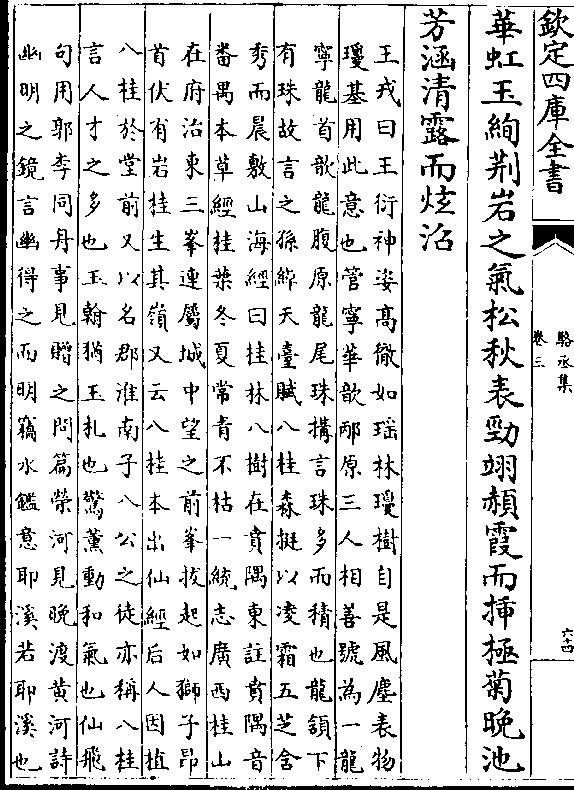 欽定四庫全書
駱丞集
卷三
六十四
華虹玉絢荆岩之氣松秋表勁翊頳霞而插極菊晚池
芳涵清露而炫沼
王戎曰王衍神姿髙徹如瑶林瓊樹自是風塵表物
瓊基用此意也管寧華歆邴原三人相善號為一龍
寧龍首歆龍腹原龍尾珠搆言珠多而積也龍頷下
有珠故言之孫綽天臺賦八桂森挺以凌霜五芝含
秀而晨敷山海經曰桂林八樹在賁隅東註賁隅音
番禺本草經桂葉冬夏常青不枯一統志廣西桂山
在府治東三峯連屬城中望之前峯拔起如獅子昂
首伏有岩桂生其嶺又云八桂本出仙經后人因植
八桂於堂前又以名郡淮南子八公之徒亦稱八桂
言人才之多也玉翰猶玉札也驚薰動和氣也仙飛
句用郭李同丹事見贈之問篇榮河見晚渡黄河詩
幽明之鏡言幽得之而明竊水鑑意耶溪若耶溪也